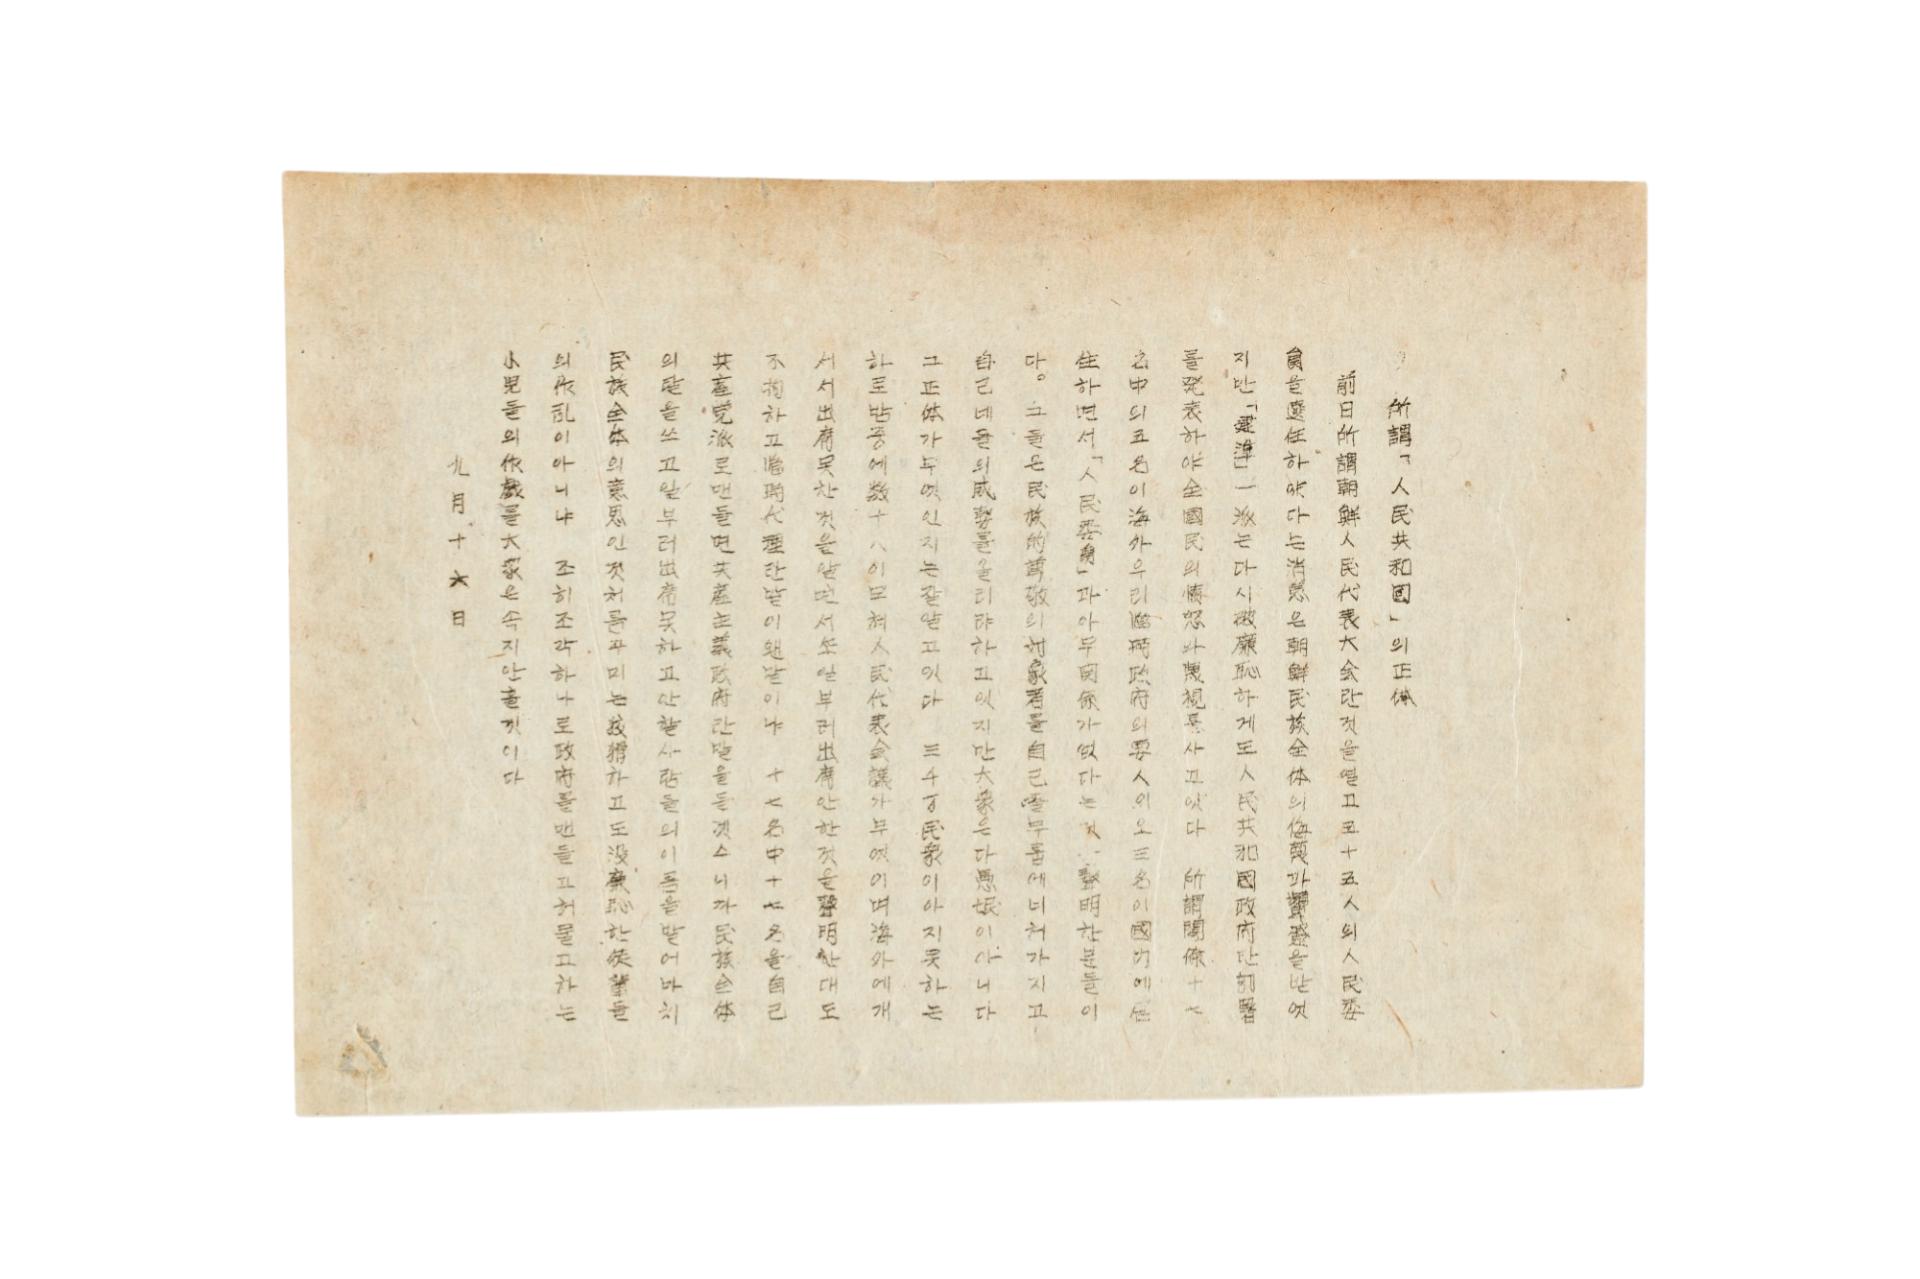 所謂「人民共和國」의正体
前日所謂朝鮮人民代表大会란것을열고五十五人의人民委
員을選任하얏다는消息은朝鮮民族全体의侮蔑과을받엇
지만「建準」一派는다시破廉恥하게도人民共和國政府란訃署
를発表하야全國民의憤怒와蔑視를사고잇다 所謂閣僚十七
名中의五名이海外우리臨時政府의要人이오三名이國内에
住하면서「人民委員」과아무関係가업다는것 聲明한분들이
다。그들은民族的尊敬의対象者를自己무틈에너허가지고
自己네들의威勢를올리랴하고잇지만大衆은다愚氓이아니다
그正体가무엇인지는잘알고잇다 三千万民衆이아지못하는
하로밤중에数十人이모혀人民代表会議가무엇이며海外에개
서서出席못한것을알면서또일부러出席안한것을聲明한대도
不拘하고臨時代理란말이웬말이냐 十七名中十七名을自己
共産党派로맨들면共産主義政府란말을듯겟스니까民族全体
의탈을쓰고일부러出席못하고안할사람들의이름을밟어마치
民族全体의意思인것처름꾸미는狡猾하고도没廉恥한徒輩들
의作乱이아니냐 조히조각하나로政府를맨들고허물고하는
小児들의作戯를大衆은속지안흘것이다
九月十六日